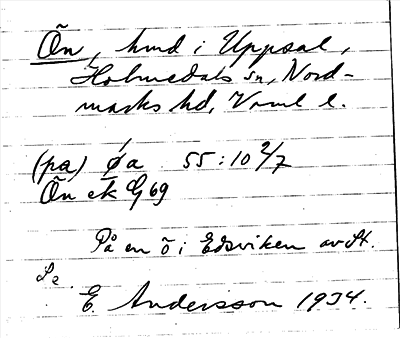 Ön, hmd i Uppsal,
Holmedals sn, Nord-
marks hd, Vrml l.
(pa) ǿa 55:10 2/7
Ön ek G 69
På en ö i Edsviken av St.
Le.
E. Andersson 1934.